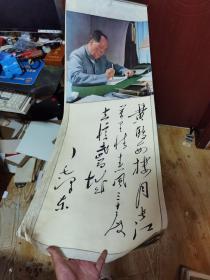 黄鹤西楼月长江
万里情春风三十度
空忆武昌城
毛泽东